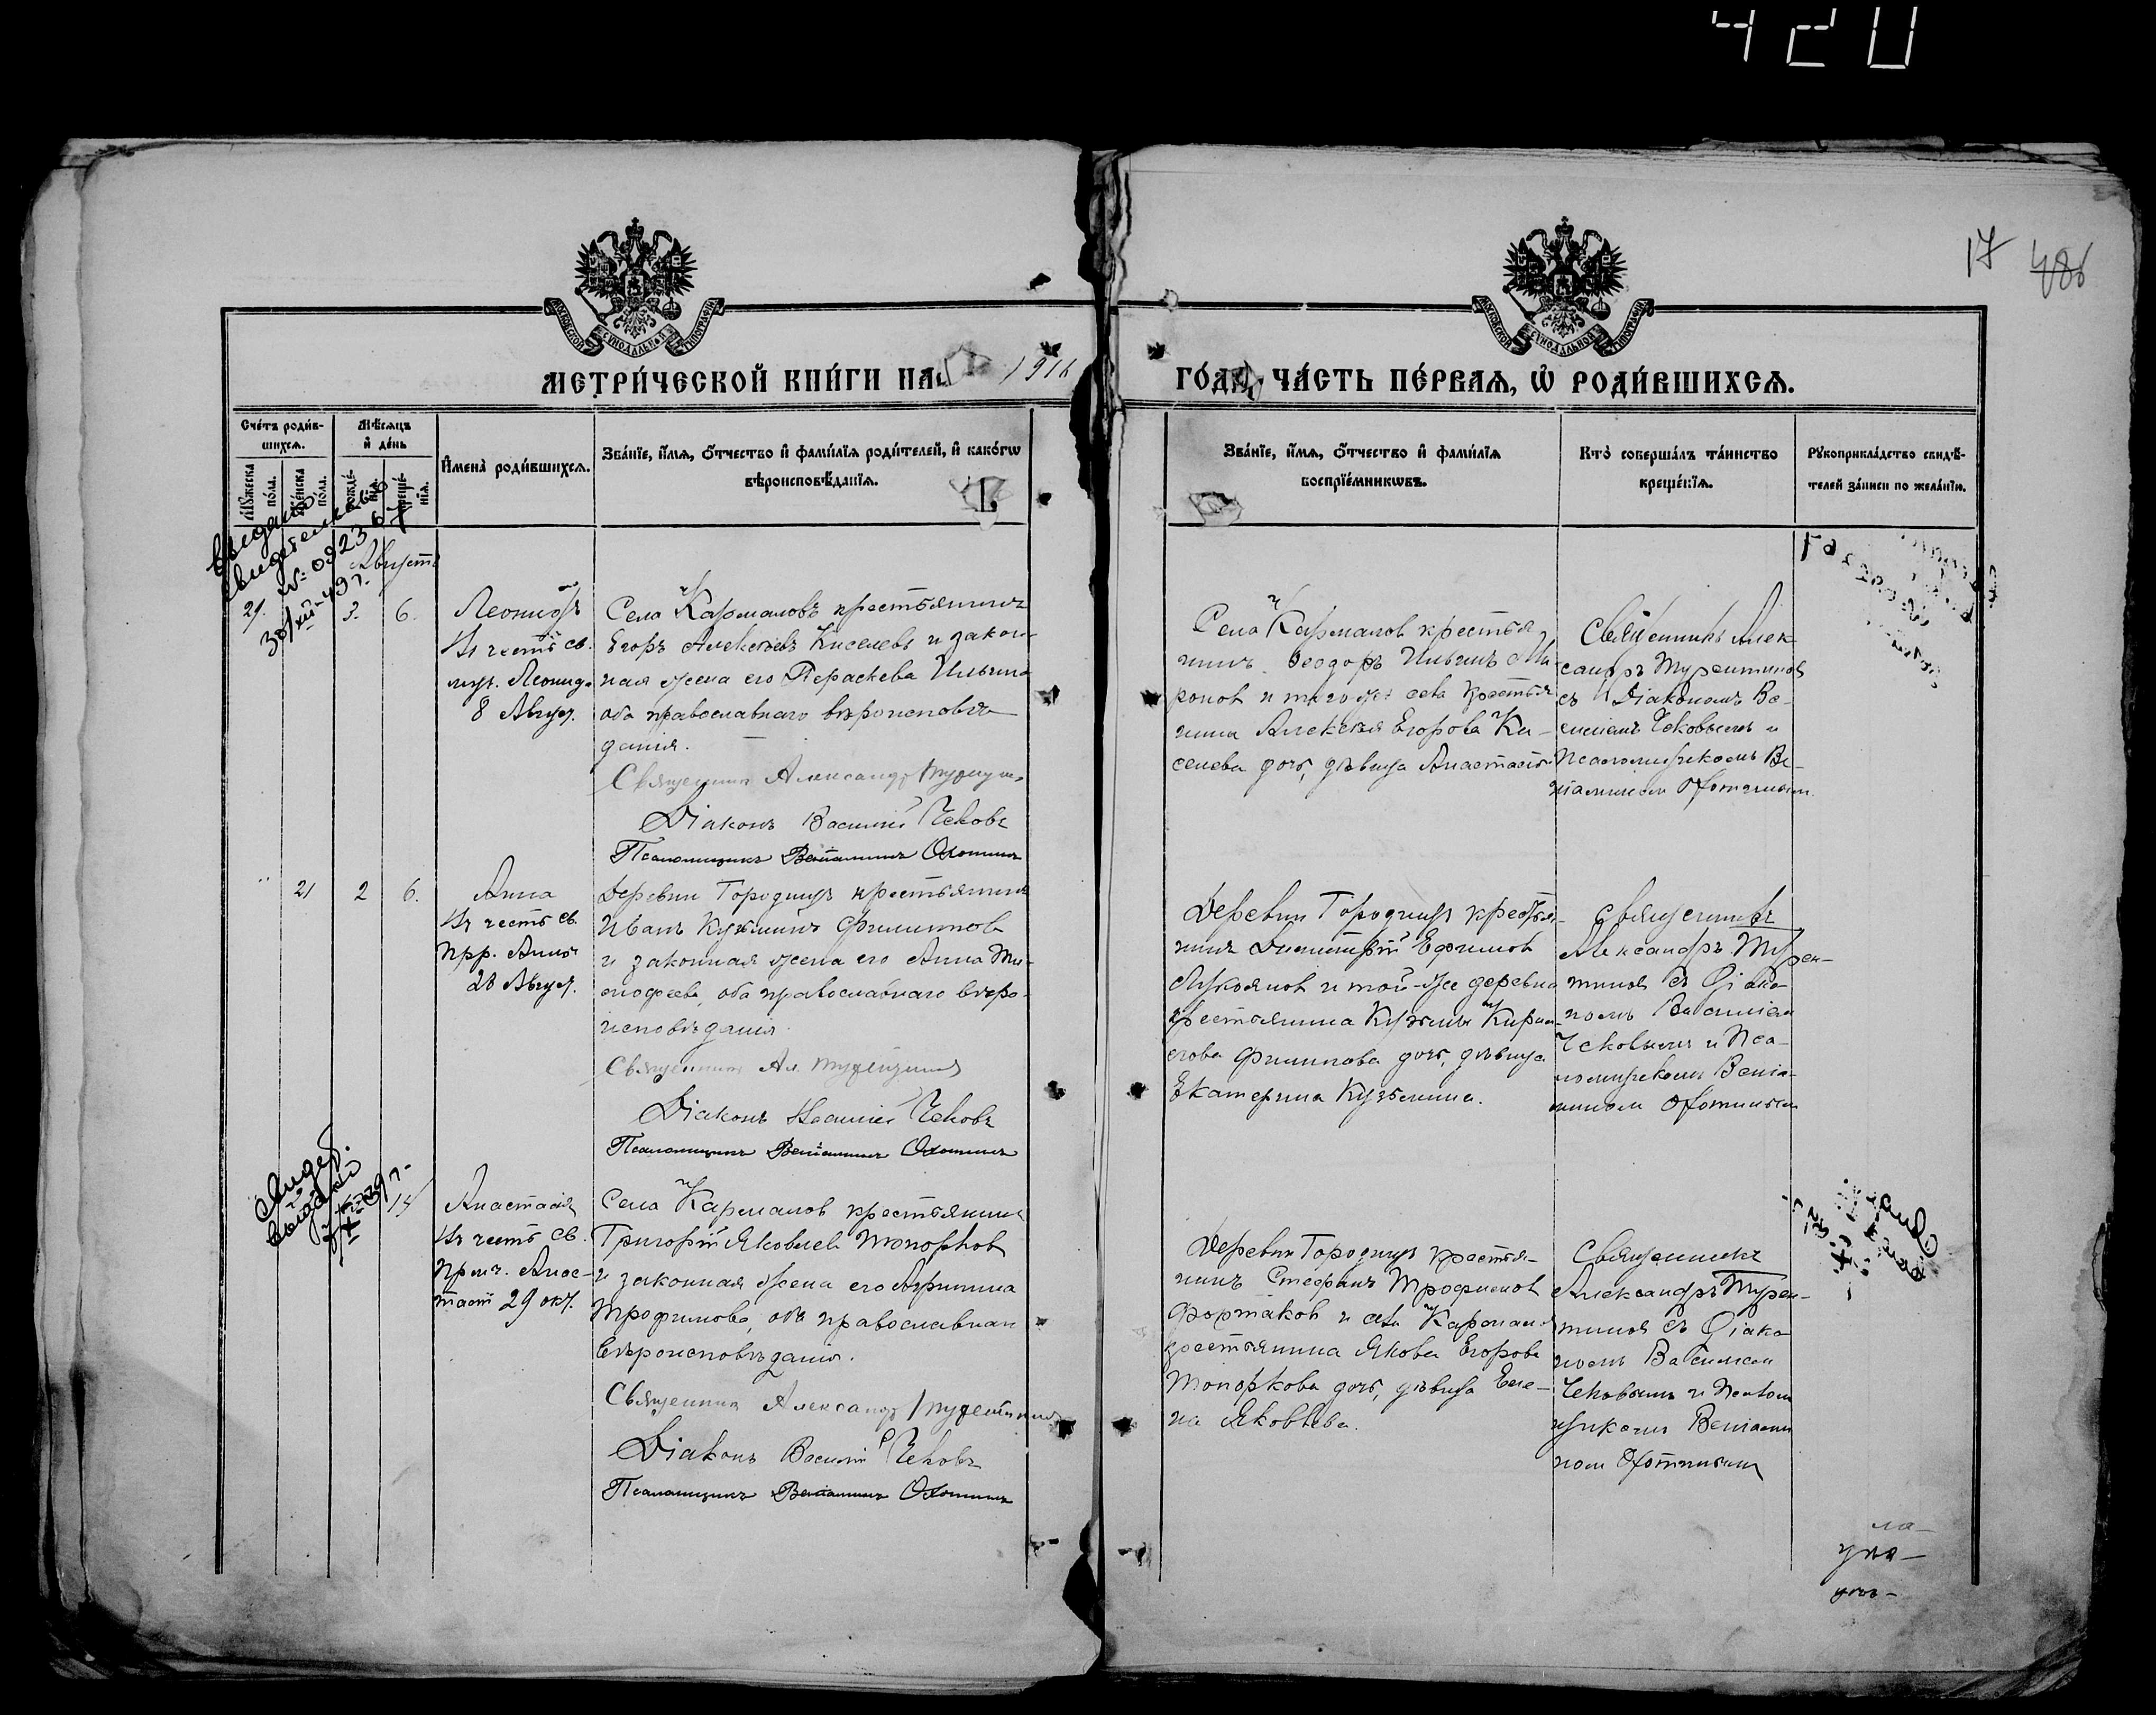 420
17 486
МОСКОВСКОЙ СѴНОДАЛЬНОЙ ТИПОГРАФІИ
МОСКОВСКОЙ СѴНОДАЛЬНОЙ ТИПОГРАФІИ
МЕТРИ́ЧЕСКОЙ КНИ́ГИ НА 1916
ГО́ДА, ЧА́СТЬ ПЕ́РВАЯ, Ѽ РОДИ́ВШИХСЯ.
Сче́тъ роди́в-
шихся.
Мѣ́сяцъ
и҆ де́нь
Мꙋ́жеска
по́ла.
Же́нска
по́ла.
Рожде́-
нїя.
Креще́-
нїя.
И҆мена̀ роди́вшихся.
Зва́нїе, и҆́мя, ѻ҆́тчество и҆ фами́лїя роди́телей, и҆ како́гѡ
вѣроисповѣ́данїя.
Зва́нїе, и҆́мя, ѻ҆́тчество и҆ фами́лїя
воспрїе́мникѡвъ.
Кто̀ соверша́лъ та́инство
креще́нїя.
Рꙋкоприкла́дство свидѣ́-
телей за́писи по жела́нїю.
Выдано
свидетельство
Августъ
3. 6.
Леонидъ
въ честь св.
муч. Леонида
8 Август.
Села Карманова крестьянинъ
Егоръ Алексѣевъ Киселевъ и закон-
ная жена его Параскева Ильина
оба православнаго вѣроисповѣ-
данія.
Священникъ Александръ
Діаконъ Василій Чековъ
Псаломщикъ Веніаминъ Охотинъ
Села Карманова крестья-
нинъ Ѳеодоръ Ильинъ Ми-
роновъ и того же села крестья-
нина Алексѣя Егорова Ки-
селева дочь, дѣвица Анастасія
Священникъ Алек-
сандръ
съ Діакономъ Ва-
силіемъ Чековымъ и
Псаломщикомъ Ве-
ніаминомъ Охотинымъ
21 2 6.
Анна
въ честь св.
прр. Анны
28 Август.
Деревни Городищъ крестьянинъ
Иванъ Кузьминъ Филиповъ
и законная жена его Анна Ти-
моѳеева, оба православнаго вѣро-
исповѣданія.
Священникъ Ал.
Діаконъ Василій Чековъ
Псаломщикъ Веніаминъ Охотинъ
Деревни Городищъ крестья-
нинъ Димитрій Ефимовъ
Лукьяновъ и той-же деревни
крестьянина Кузьмы Кирил-
лова Филипова дочь, дѣвица
Екатерина Кузьмина.
Священникъ
Александръ
съ Діако-
номъ Василіемъ
Чековымъ и Пса-
ломщикомъ Веніа-
миномъ Охотинымъ
Свидет.
выдано
Анастасія
въ честь св.
прмч. Анас-
тасіи 29 окт.
Села Карманова крестьянинъ
Григорій Яковлевъ Топорковъ
и законная жена его Агрипина
Трофимова, оба православнаго
вѣроисповѣданія.
Священникъ Александръ
Діаконъ Василій Чековъ
Псаломщикъ Веніаминъ Охотинъ
Деревни Городищъ крестья-
нинъ Стефанъ Трофимовъ
и села Карманова
крестьянина Якова Егорова
Топоркова дочь, дѣвица Еле-
на Яковлева.
Священникъ
Александръ
съ Діако-
номъ Василіемъ
Чековымъ и Псалом-
щикомъ Веніами-
номъ Охотинымъ